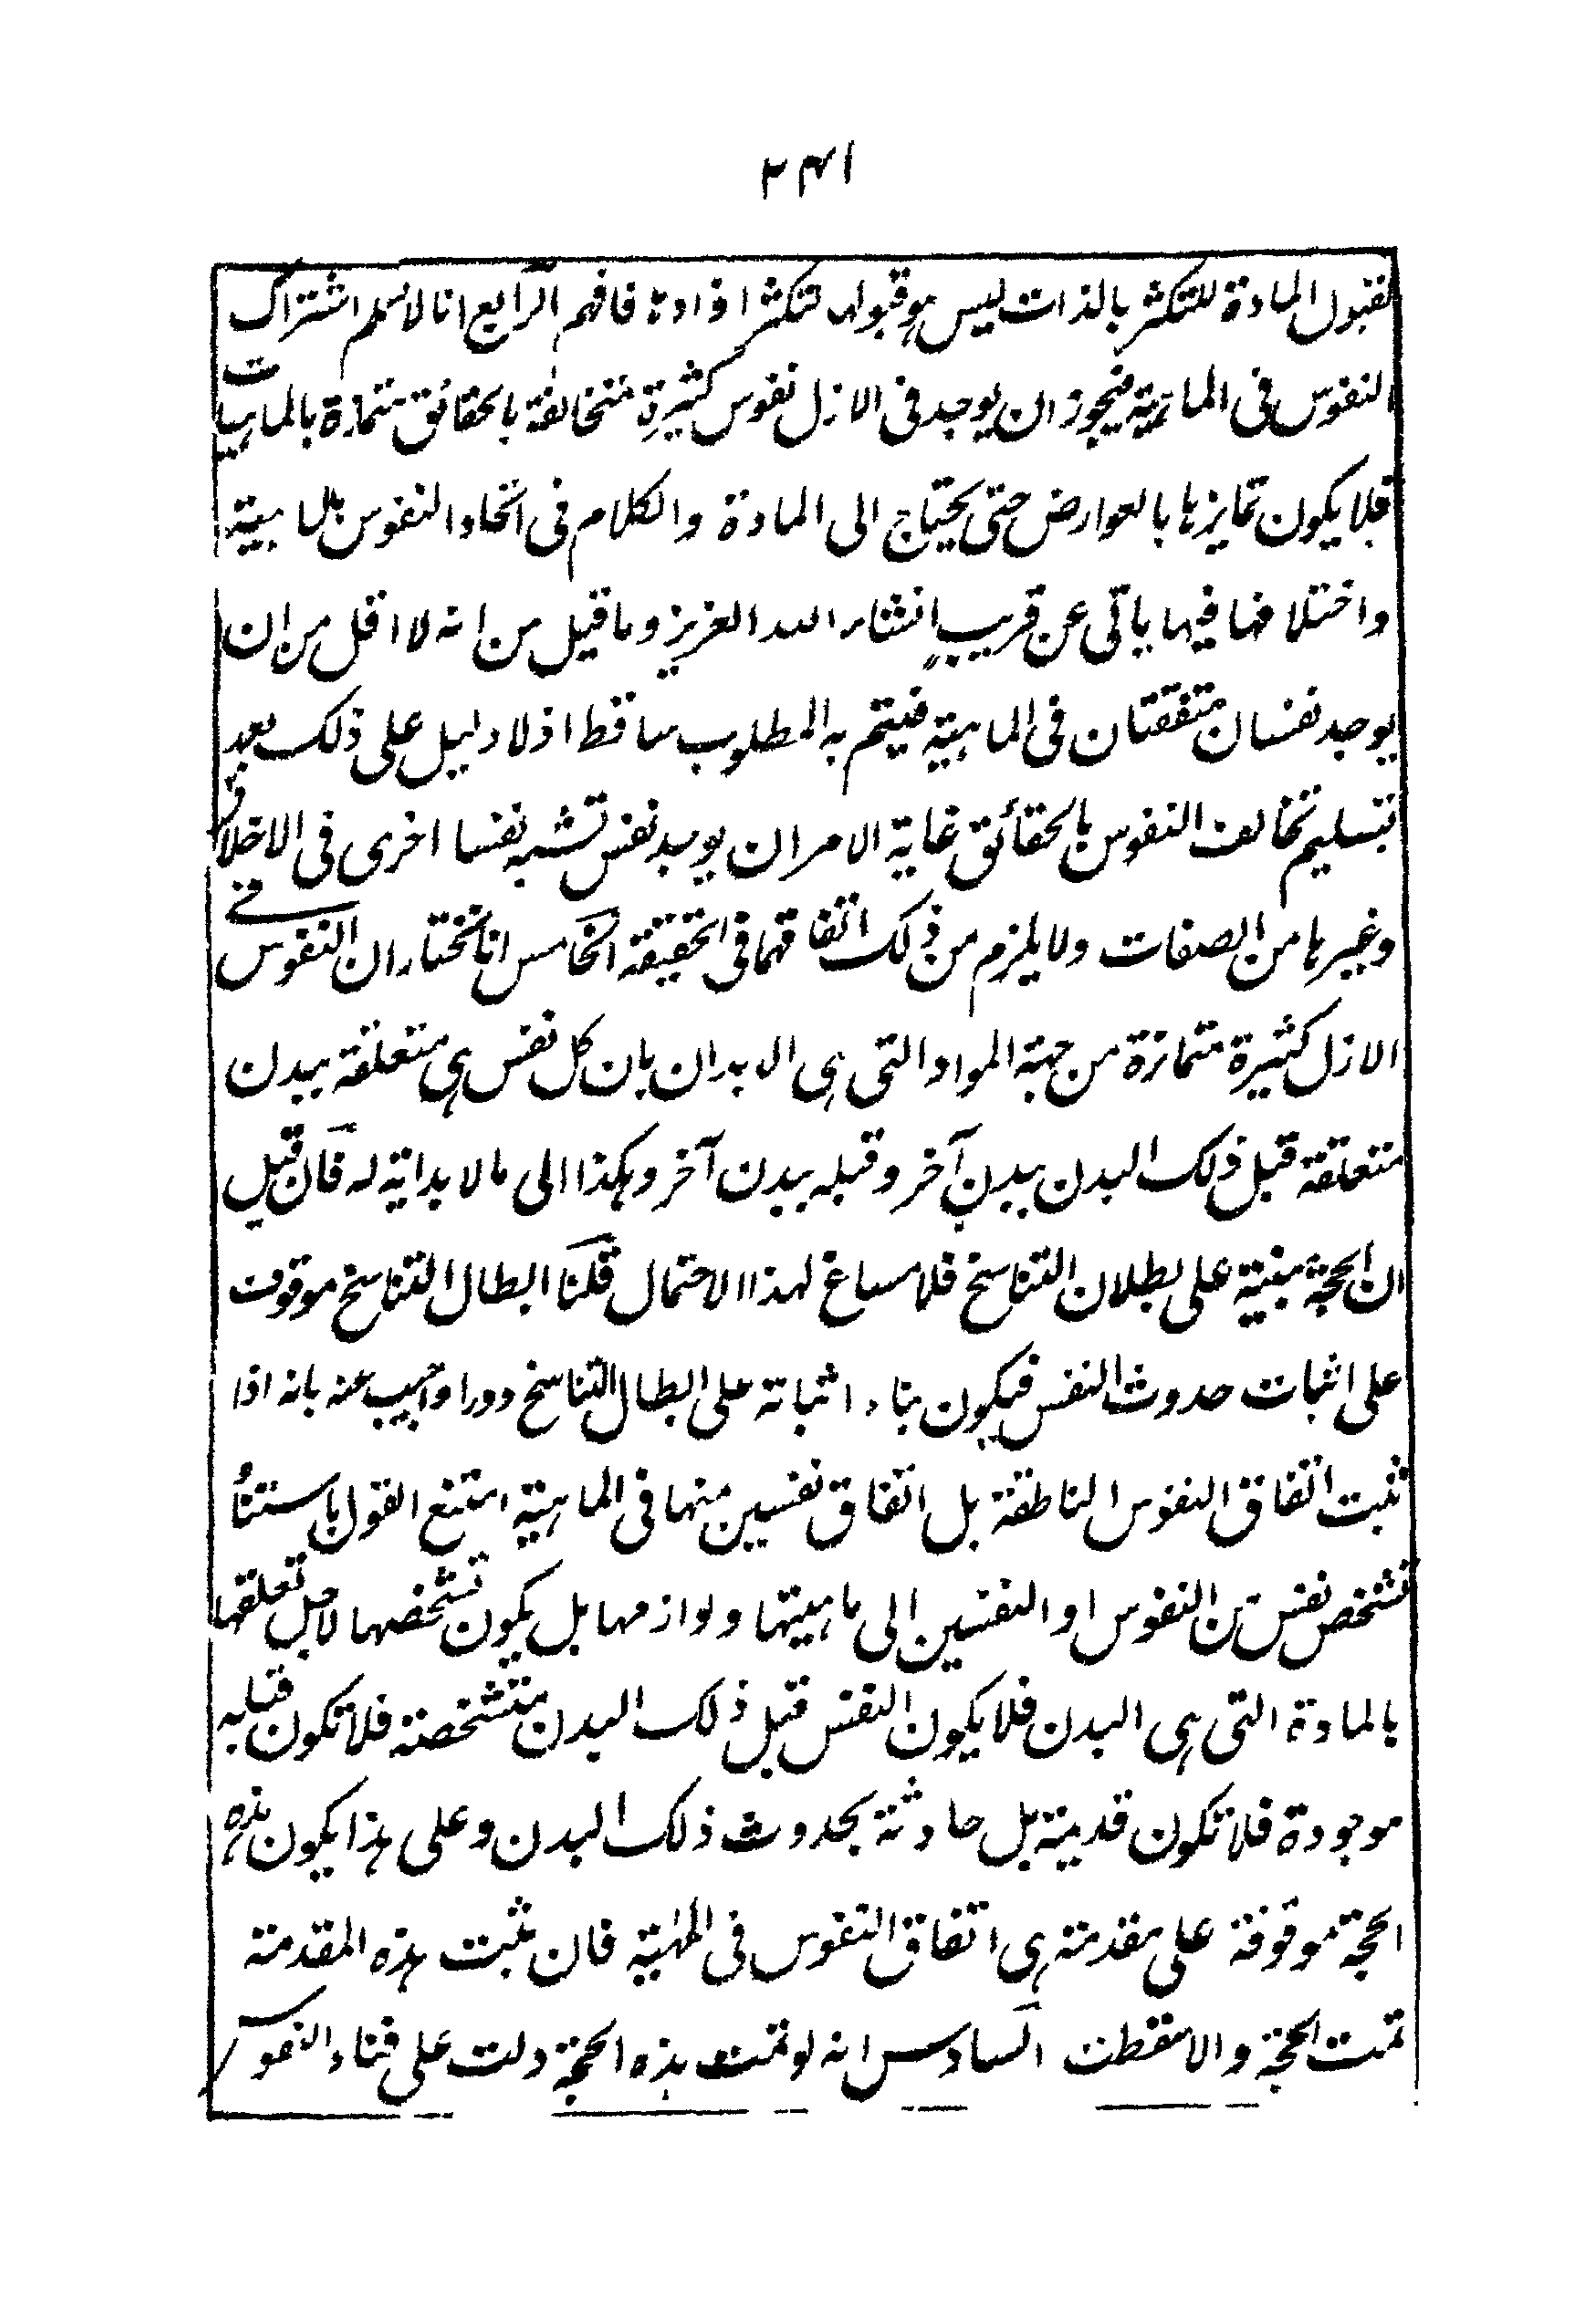 ٢٤١
فقبول المادة للتكثر بالذات ليس هو قبولها لتكثر افرادها فافهم الرابع انا لا نسلم اشتراك
النفوس فى الماهية فيجوز ان يوجد فى الازل نفوس كثيرة متخالفة بالحقائق متمازة بالماهيات
فلا يكون تمايزها بالعوارض حتى يحتاج الى المادة والكلام فى اتحاد النفوس بالماهية
واختلافها فيها ياتى عن قريب انشاء الله العزيز وما قيل من انه لا اقل من ان
يوجد نفسان متفقتان فى الماهية فيتم به المطلوب ساقط اذ لا دليل على ذلك بعد
تسليم تخالف النفوس بالحقائق غاية الامر ان يوجد نفس تشبه نفسا اخرى فى الاخلاق
وغيرها من الصفات ولا يلزم من ذلك اتفاقهما فى الحقيقة الخامس انا نختار ان النفوس فى
الازل كثيرة متمازة من جهة المواد التى هى الابدان بان كل نفس هى متعلقة ببدن
متعلقة قبل ذلك البدن ببدن آخر وقبله ببدن آخر وهكذا الى ما لا بداية له فان قيل
ان الحجة مبنية على بطلان التناسخ فلا مساغ لهذا الاحتمال قلنا ابطال التناسخ موقوف
على اثبات حدوث النفس فيكون بناء اثباته على ابطال التناسخ دورا واجيب عنه بانه اذا
ثبت اتفاق النفوس الناطقة بل اتفاق نفسين منها فى الماهية امتنع القول باستناد
تشخص نفس من النفوس او النفسين الى ماهيتها ولوازمها بل يكون تشخصها لاجل تعلقها
بالمادة التى هى البدن فلا يكون النفس قبل ذلك البدن متشخصة فلا تكون قبله
موجودة فلا تكون قديمة بل حادثة بحدوث ذلك البدن وعلى هذا يكون هذه
الحجة موقوفة على مقدمة هى اتفاق النفوس فى المهية فان ثبت هذه المقدمة
تمت الحجة والا سقطت السادس انه لو تمت هذه الحجة دلت على فناء النفوس